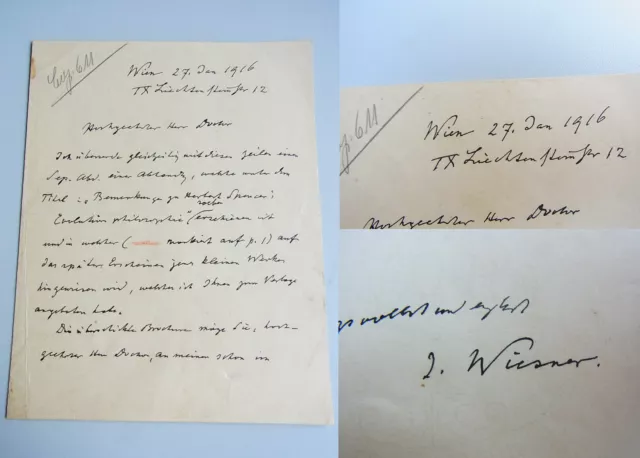 Wien 27. Jan 1916
IX Liechtensteinstr 12
Hochgeehrter Herr Doctor
Ich übersende gleichzeitig mit diesen Zeilen einen
Sep. Abd. einer Abhandlg, welche unter dem
Titel: „Bemerkungen zu Herbert Spencer's
Evolutionsphilosophie" erschienen ist
und in welcher ( markirt auf p. 1) auf
das spätere Erscheinen jenes kleinen Werkes
hingewiesen wird, welches ich Ihnen zum Verlage
angeboten habe.
Die überschickte Brochure möge Sie, hoch-
geehrter Herr Doctor, an meinen schon im
Wien 27. Jan 1916
IX Liechtensteinstr 12
Hochgeehrter Herr Doctor
J. Wiesner.